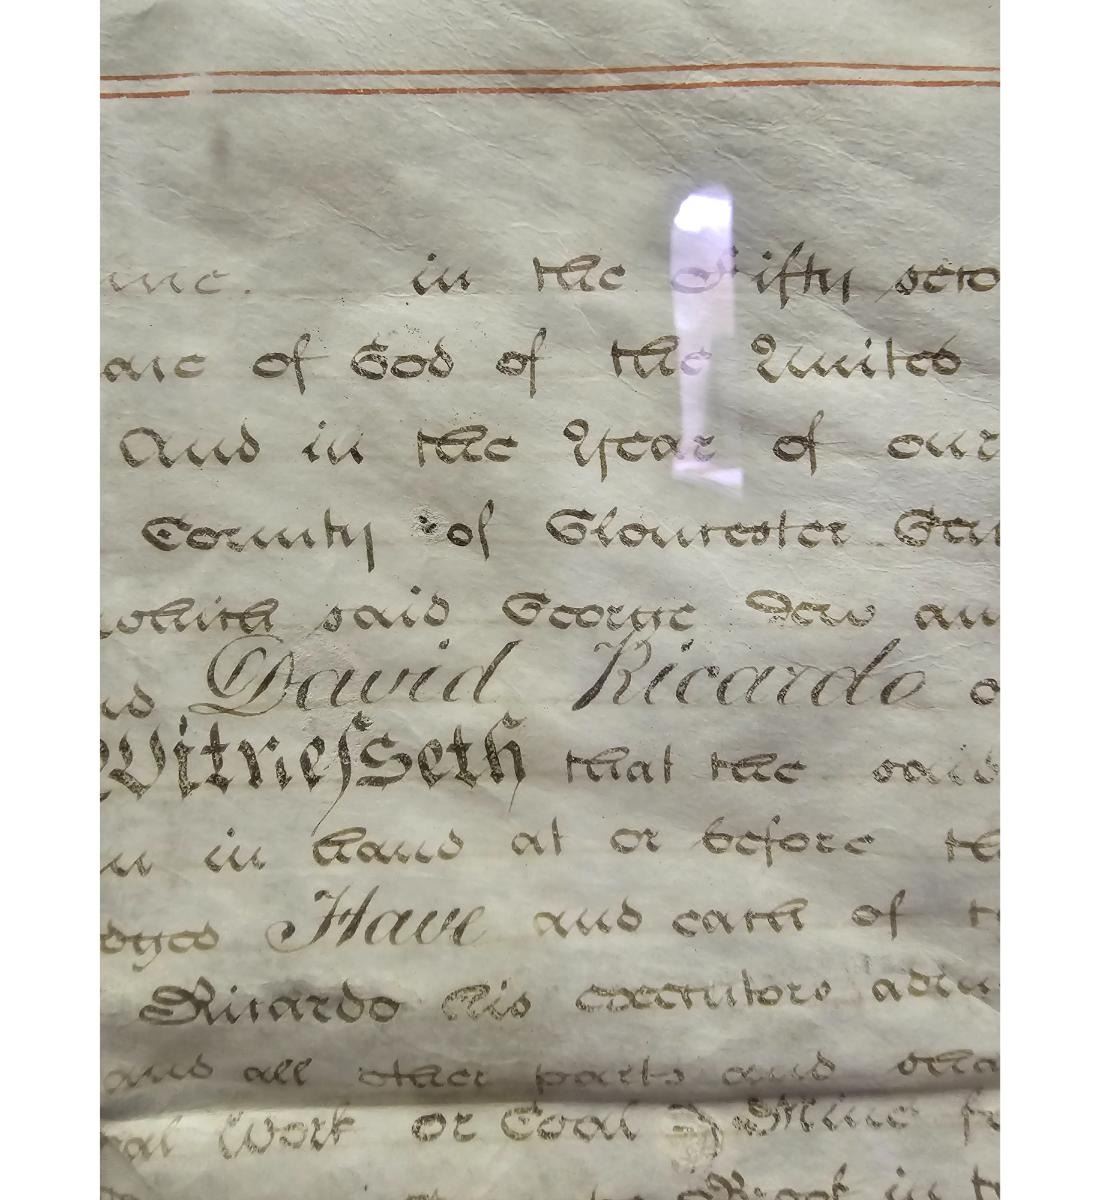 in the Fifty seco
of God of the United
And in the Year of our
County of Gloucester Gen
which said George Dew an
David Ricardo o
Witnesseth that the said
in hand at or before th
Have and each of t
Ricardo his executors admi
and all other parts and sha
al Work or Coal Mine fr